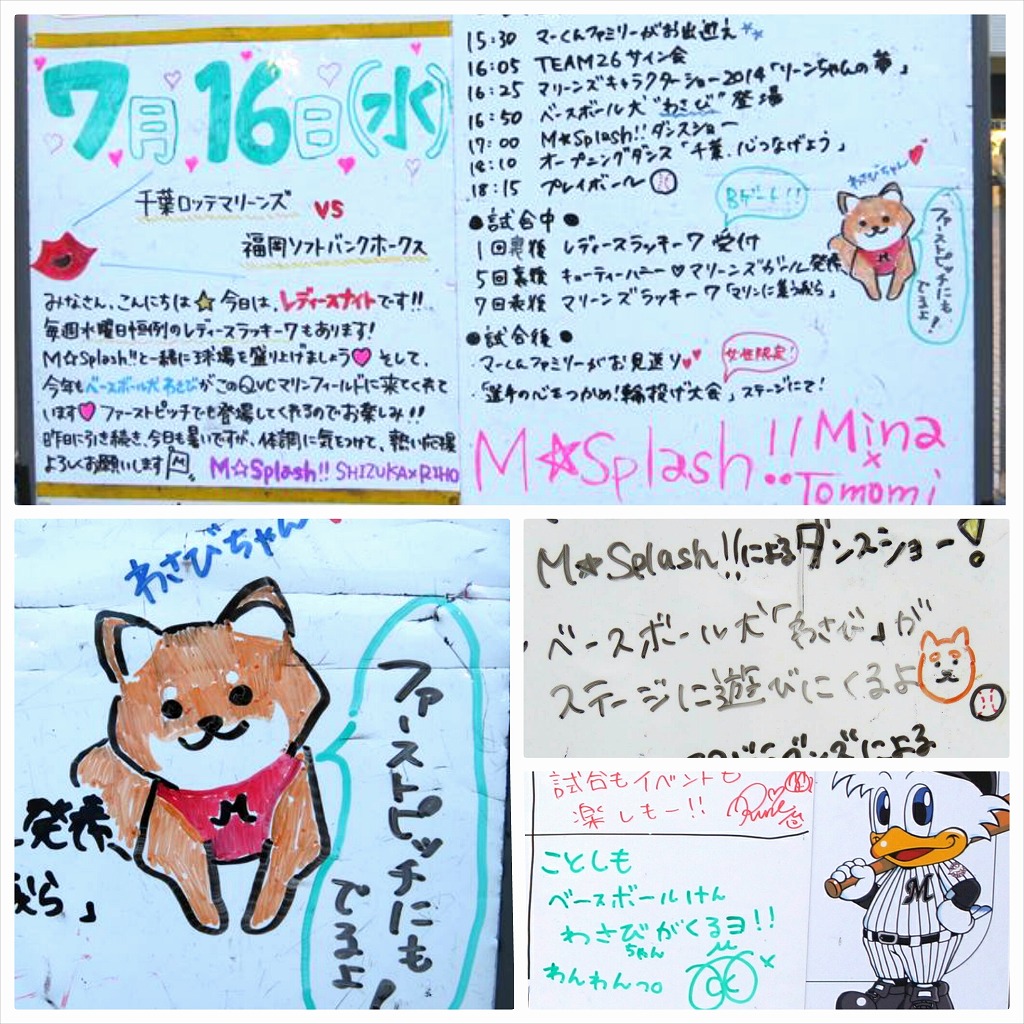 7月16日(水)
千葉ロッテマリーンズ vs
福岡ソフトバンクホークス
みなさん、こんにちは☆今日は、レディースナイトです!!
毎週水曜日恒例のレディースラッキー7もあります!
M☆Splash!!と一緒に球場を盛り上げましょう♥ そして、
今年もベースボール犬わさびがこのQVCマリンフィールドに来てくれて
います♥ ファーストピッチでも登場してくれるのでお楽しみ!!
昨日に引き続き、今日も暑いですが、体調に気をつけて、熱い応援
よろしくお願いします M
M☆Splash!! SHIZUKA×RIHO
15:30 マーくんファミリーがお出迎え
16:05 TEAM26サイン会
16:25 マリーンズキャラクターショー2014「リーンちゃんの夢」
16:50 ベースボール犬“わさび”登場
17:00 M☆Splash!!ダンスショー
18:10 オープニングダンス「千葉、心つなげよう」
18:15 プレイボール
●試合中●
Bゲート!!
1回裏後 レディースラッキー7 受付
5回裏後 キューティーハニー♡マリーンズガール発表
7回表後 マリーンズラッキー7「マリンに集う我ら」
わさびちゃん
ファーストピッチにも
でるよ!
●試合後●
・マーくんファミリーがお見送り
女性限定!
・「選手の心をつかめ!輪投げ大会」ステージにて!
M☆Splash!! Mina
×
Tomomi
わさびちゃん
発表
我ら」
M
ファーストピッチにも
でるよ!
M☆Splash!!によるダンスショー!
・ベースボール犬「わさび」が
ステージに遊びにくるよ
による
試合もイベントも
楽しもー!!
ことしも
ベースボールけん
わさびがくるヨ!!
ちゃん
わんわんっ。
M